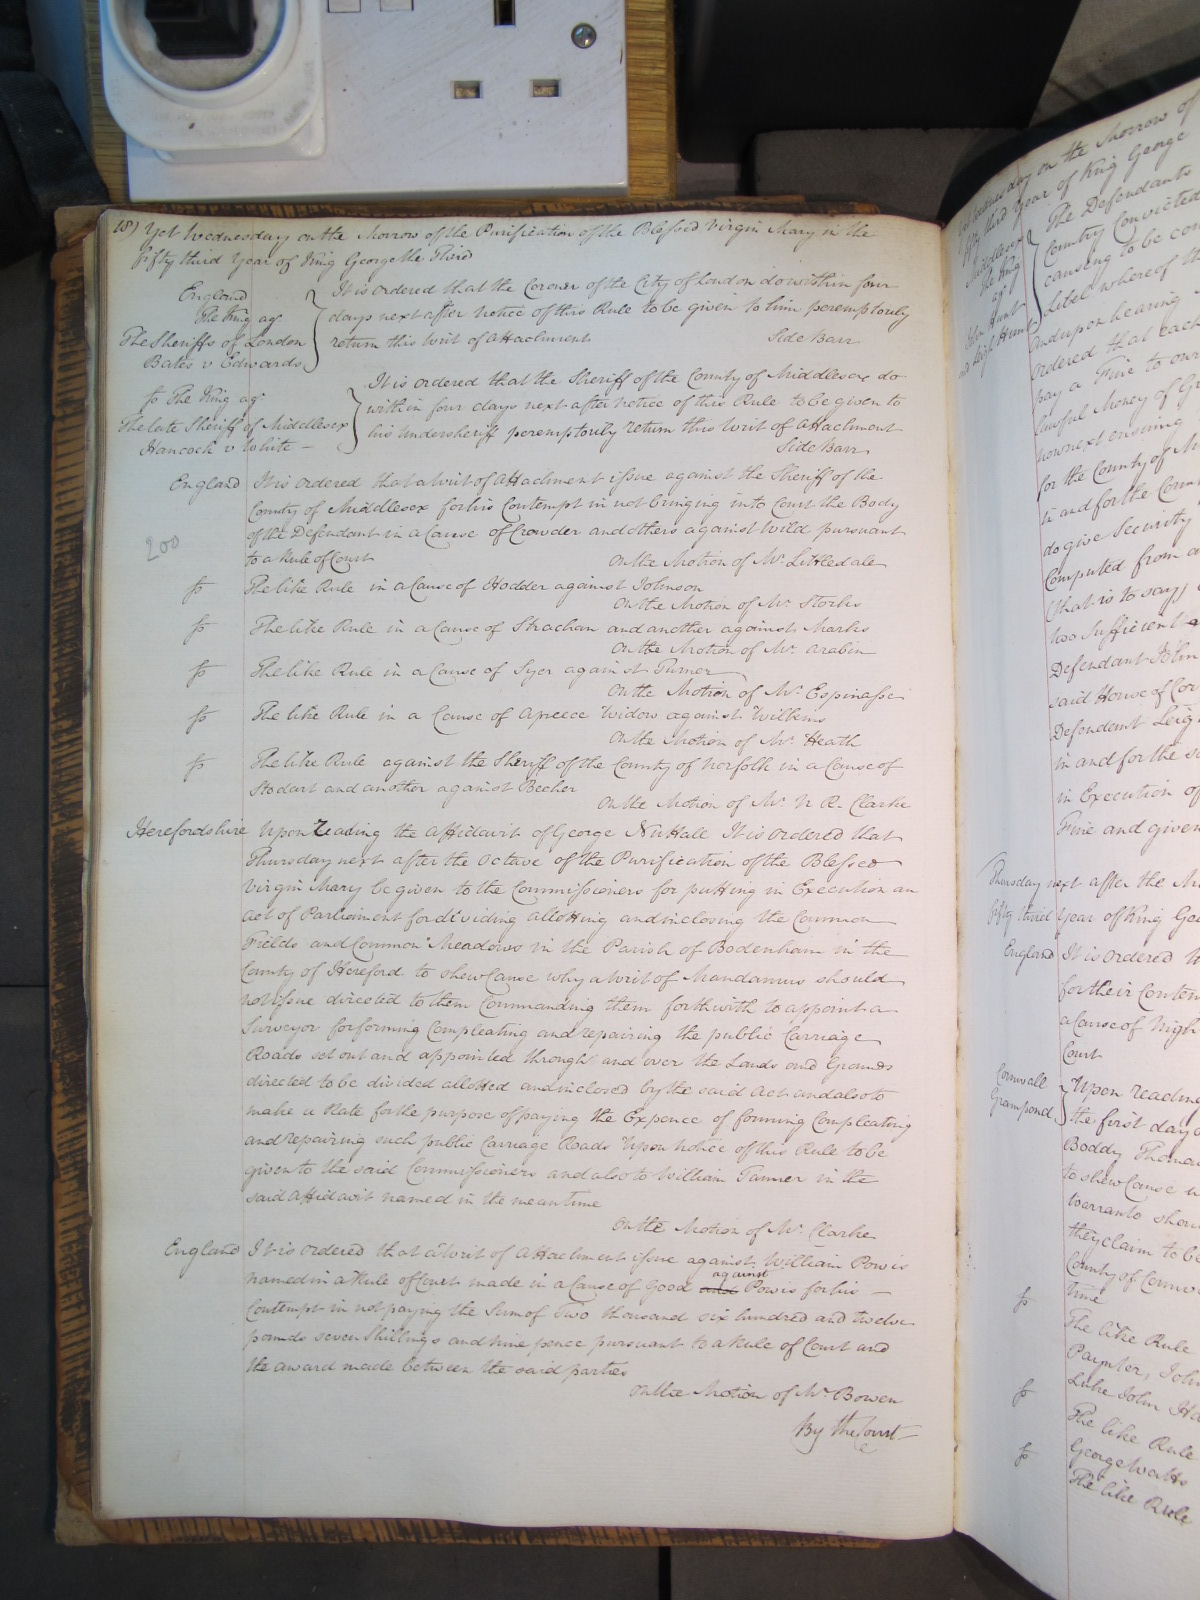 Yet Wednesday on the Morrow of the Purification of the Blessed Virgin Mary in the
fifty third Year of King George the Third
England
The King agt
The Sheriffs of London
Bates v Edwards
It is ordered that the Coroner of the City of London do within four
days next after notice of this Rule to be given to him peremptorily
return this Writ of Attachment
Side Barr
The King agt
The late Sheriff of Middlesex
Hancock v White
It is ordered that the Sheriff of the County of Middlesex do
within four days next after notice of this Rule to be given to
his Undersheriff peremptorily return this Writ of Attachment
Side Barr
England It is ordered that a Writ of Attachment issue against the Sheriff of the
County of Middlesex for his Contempt in not bringing into Court the Body
of the Defendant in a Cause of Crowder and others against Wild pursuant
200
to a Rule of Court
On the Motion of Mr Littledale
The like Rule in a Cause of Hodder against Johnson
On the Motion of Mr Storks
The like Rule in a Cause of Strachan and another against Marks
On the Motion of Mr Arabin
The like Rule in a Cause of Syer against Turner
On the Motion of Mr Espinasse
The like Rule in a Cause of Apreece Widow against Wilkins
On the Motion of Mr Heath
The like Rule against the Sheriff of the County of Norfolk in a Cause of
Stodart and another against Becher
On the Motion of Mr N R Clarke
Herefordshire Upon reading the Affidavit of George Nuttall It is ordered that
Thursday next after the Octave of the Purification of the Blessed
Virgin Mary be given to the Commissioners for putting in Execution an
act of Parliament for dividing allotting and inclosing the Common
Fields and Common Meadows in the Parish of Bodenham in the
County of Hereford to shew Cause why a Writ of Mandamus should
not issue directed to them Commanding them forthwith to appoint a
Surveyor for forming Compleating and repairing the public Carriage
Roads set out and appointed through and over the Lands and Grounds
directed to be divided allotted and inclosed by the said Act and also to
make a Rate for the purpose of paying the Expence of forming Compleating
and repairing such public Carriage Roads Upon notice of this Rule to be
given to the said Commissioners and also to William Tanner in the
said Affidavit named in the mean time
On the Motion of Mr Clarke
England It is ordered that a Writ of Attachment issue against William Powis
named in a Rule of Court made in a Cause of Good against Powis for his
Contempt in not paying the Sum of Two thousand six hundred and twelve
pounds seven Shillings and nine pence pursuant to a Rule of Court and
the award made between the said parties
On the Motion of Mr Bowen
By the Court
Wednesday on the Morrow of
fifty third Year of King George
Middlesex
The King
agt
John Hunt
and Leigh Hunt
The Defendants
Country Convicted
causing to be
Libel whereof th
And upon hearing
ordered that each
pay a Fine to our
lawful Money of G
now next ensuing
for the County of M
in and for the Coun
do give Security
Computed from a
(that is to say)
two sufficient
Defendant John
said House of Cor
Defendant Leig
in and for the s
in Execution of
Fine and given
Thursday next after the M
fifty third Year of King Geo
England It is Ordered th
for their Contem
a Cause of High
Court
Cornwall
Grampond
Upon reading
the first day o
Boddy Thomas
to shew Cause w
warranto shou
they claim to be
County of Cornw
time
The like Rule
Paynter, John
Luke John Ha
The like Rule
George Watts
The like Rule